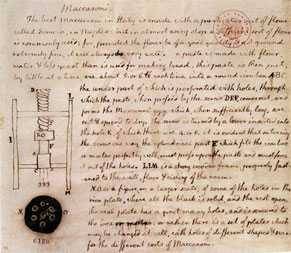 Maccaroni.
The best maccaroni in Italy is made with a particular sort of flour
called Semola, in Naples: but in almost every shop a different sort of flour
is commonly used; for, provided the flour be of a good quality, & not ground
extremely fine, it will always do very well. a paste is made with flour,
water & less yeast than is used for making bread. this paste is then put,
by little at a time viz. about 5. or 6. lb. each time into a round iron box ABC.
the under part of which is perforated with holes, through
which the paste, when pressed by the screw DEF, comes out, and
forms the Maccaroni g.g.g. which, when sufficiently long, are
cut & spread to dry. the screw is turned by a lever inserted into
the hole K, of which there are 4. or 6. it is evident that on turning
the screw one way, the cylindrical part F. which fits the iron box
or mortar perfectly well, must press upon the paste and must force
it out of the holes. LLM. is a strong wooden frame, properly fast-
ened to the wall, floor & cieling of the room.
N.O. is a figure, on a larger scale, of some of the holes in the
iron plate, where all the black is solid, and the rest open.
the real plate has a great many holes, and is screwed to
the box or mortar: or rather there is a set of plates which
may be changed at will, with holes of different shapes & sizes
for the different sorts of Maccaroni.